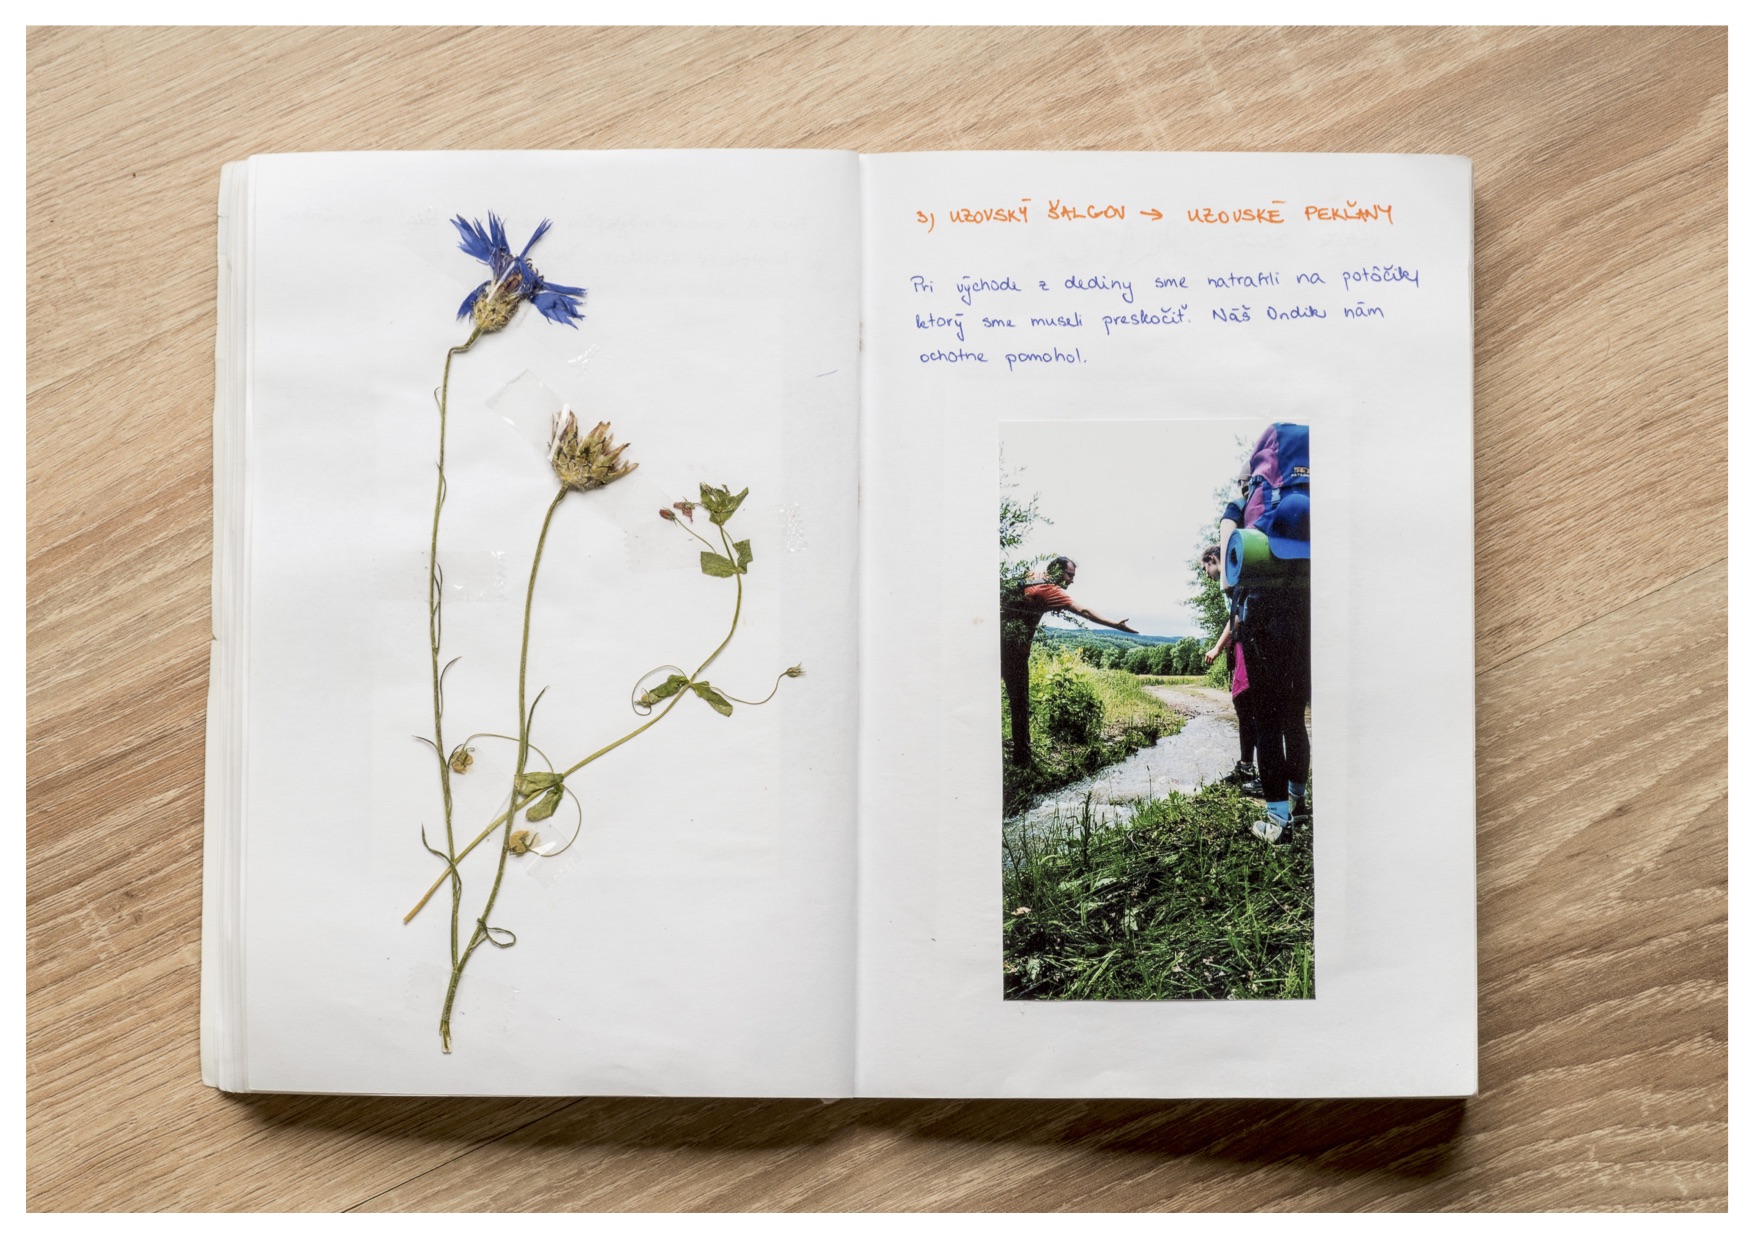 3) UZOVSKÝ ŠALGOV → UZOVSKÉ PEKĽANY
Pri východe z dediny sme natrafili na potôčik,
ktorý sme museli preskočiť. Náš Ondik nám
ochotne pomohol.